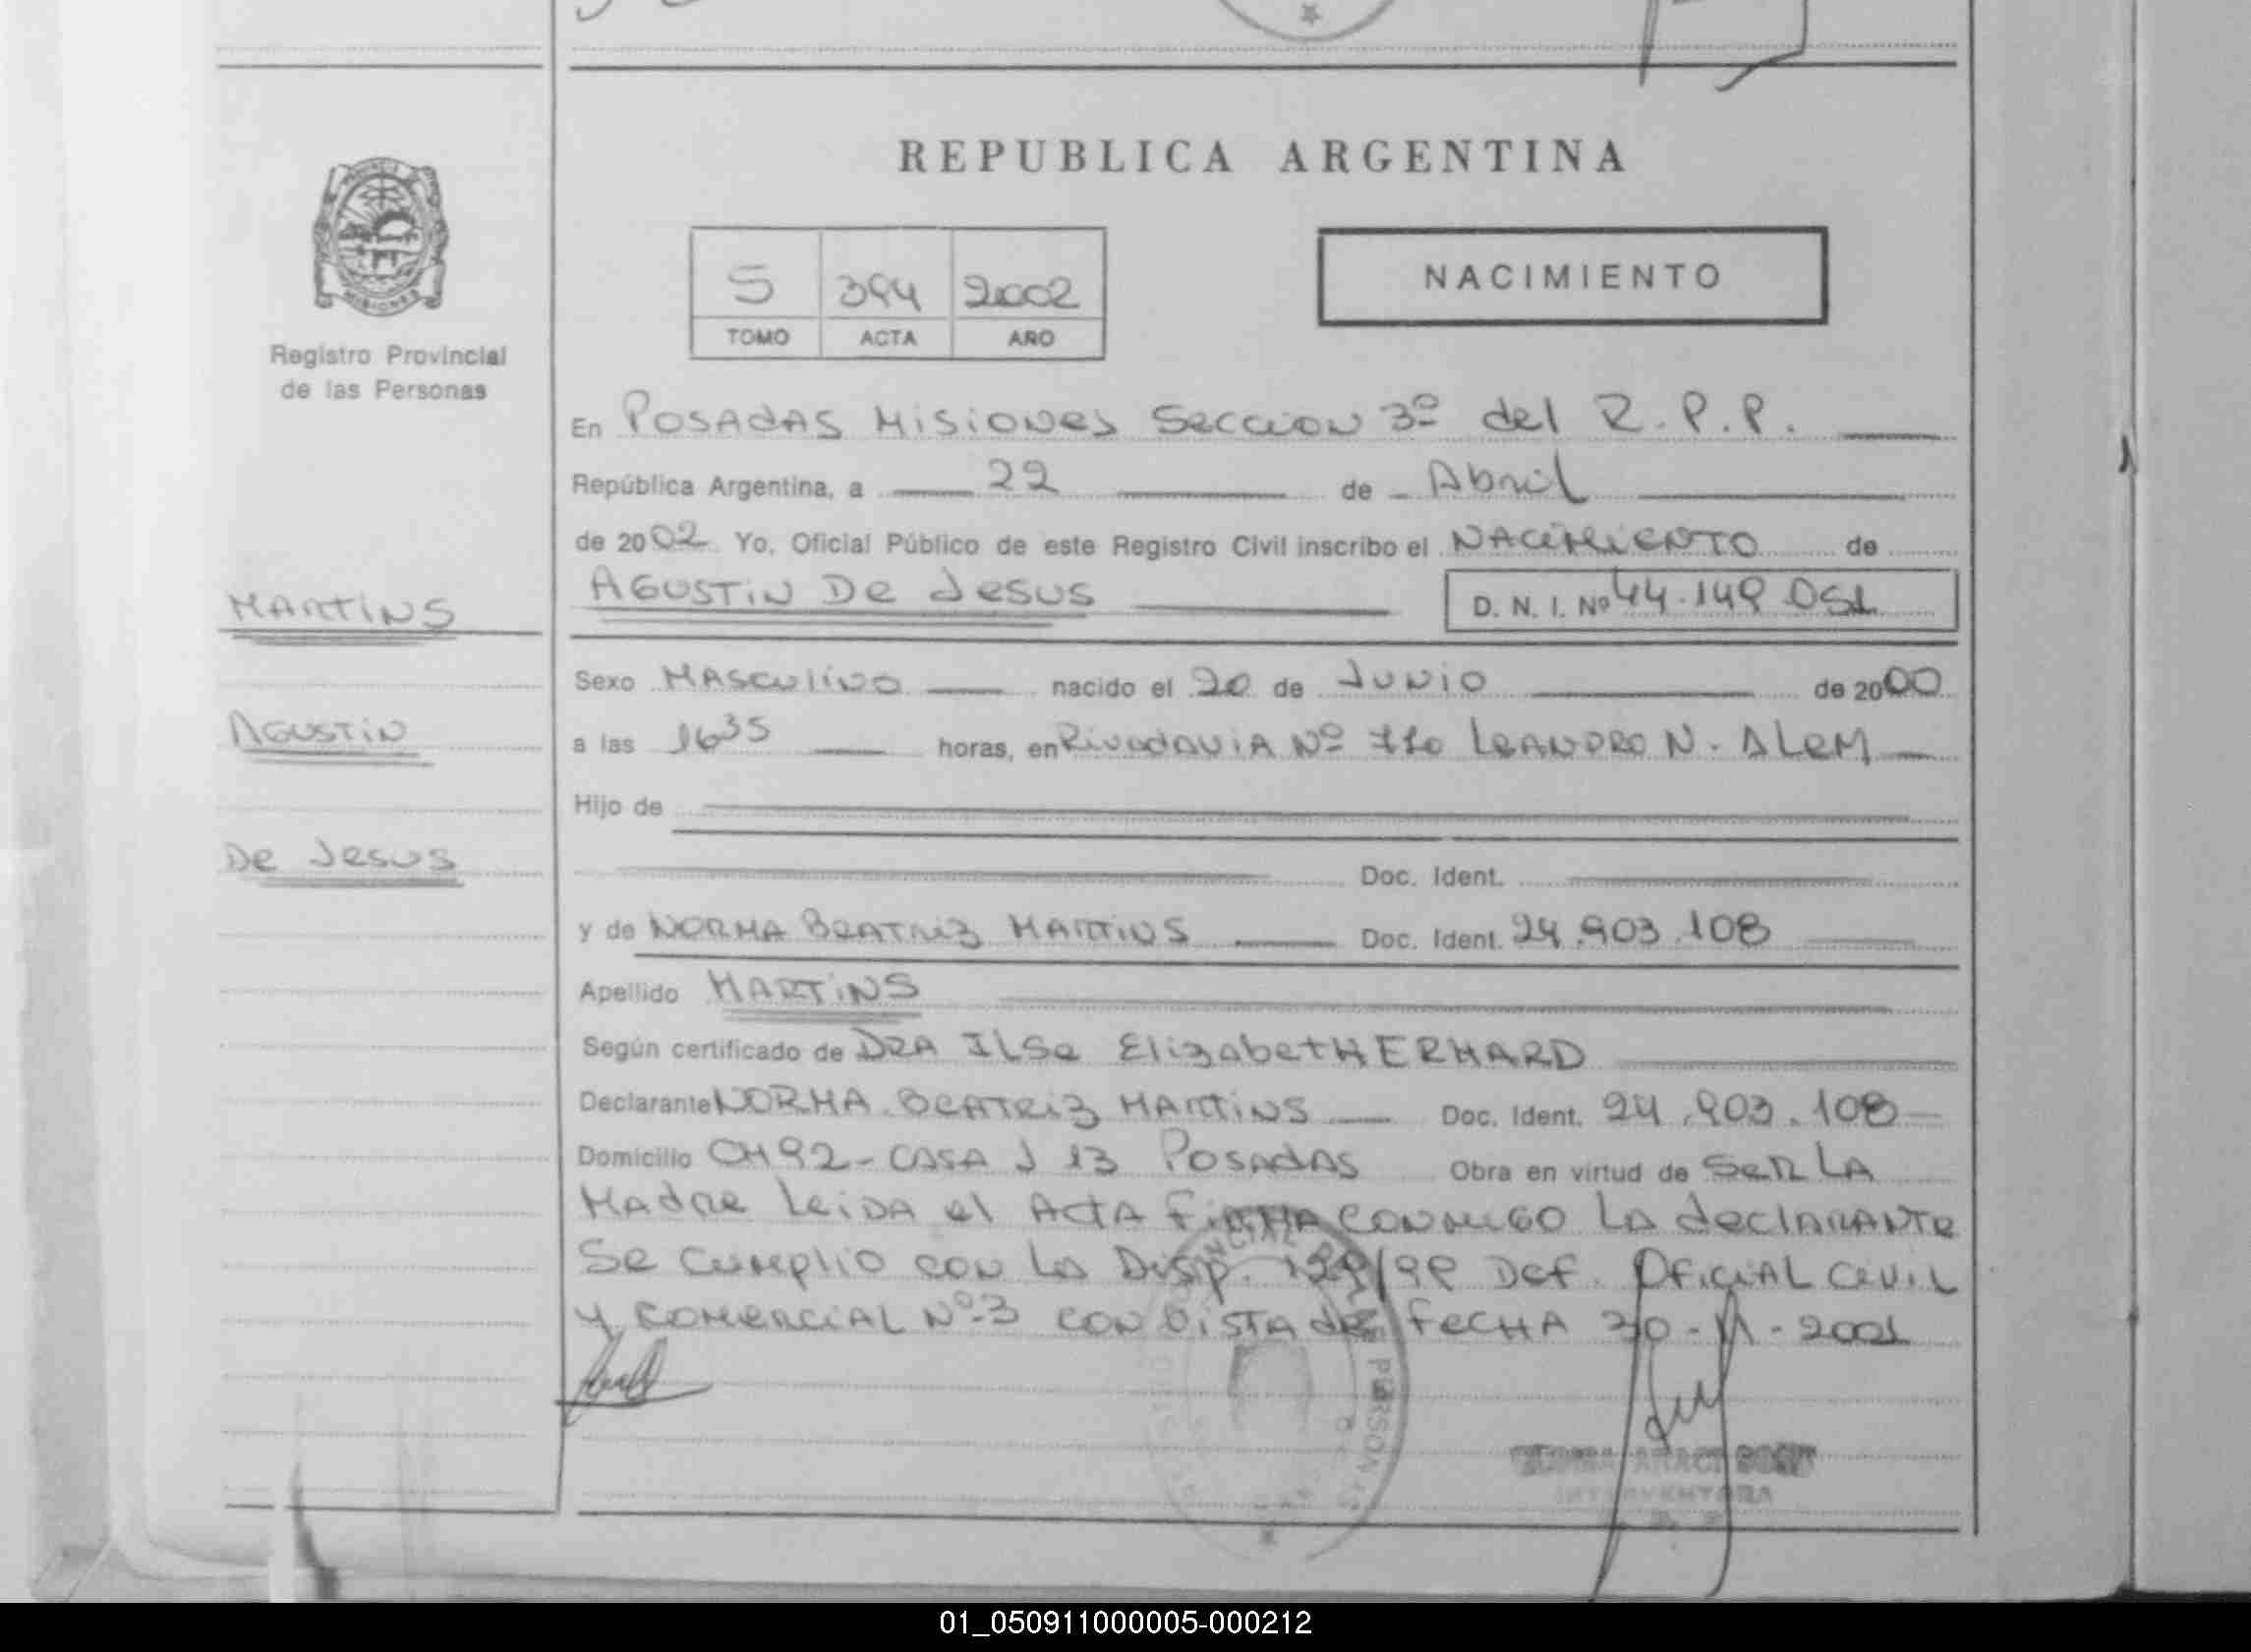 REPUBLICA ARGENTINA
MISIONES
Registro Provincial
de las Personas
5 394 2002
TOMO ACTA AÑO
NACIMIENTO
En POSADAS MISIONES SECCION 3º del R.P.P.
República Argentina, a 22 de Abril
de 2002 Yo, Oficial Público de este Registro Civil inscribo el NACIMIENTO de
AGUSTIN De JESUS D. N. I. Nº 44.149.051
MARTINS
AGUSTIN
De JESUS
Sexo MASCULINO nacido el 20 de JUNIO de 2000
a las 1635 horas, en RivadAViA Nº 110 LEANDRO N. ALEM
Hijo de
Doc. Ident.
y de NORMA BEATRIZ MARTINS Doc. Ident. 24.903.108
Apellido MARTINS
Según certificado de DRA ILSe ElizabetH ERHARD
Declarante NORMA BEATRIZ MARTINS Doc. Ident. 24.903.108
Domicilio CH 92 - CASA J 13 POSADAS Obra en virtud de SER LA
MADRE LEIDA el ACTA FIRMA CONMIGO LA declARANTE
Se cumplio con la Disp. 129/99 Def. OFICIAL CIVIL
Y COMERCIAL Nº 3 CON VISTA de FECHA 30-11-2001
INTERVENTORA
01_050911000005-000212